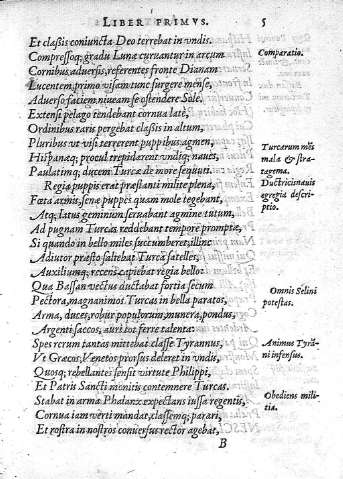 LIBER PRIMVS. 5
Et classis coniuncta Deo terrebat in vndis.
Compressoq; gradu Lunæ curuantur in arcum
Comparatio.
Cornibus aduersis, referentes fronte Dianam
Lucentem, primo visam tunc surgere mense,
Aduerso faciem niueam se ostendere Sole.
Extensi pelago tendebant cornua latè,
Ordinibus raris pergebat classis in altum,
Pluribus vt visi terrerent puppibus agmen,
Hispanæq; procul trepidarent vndiq; naues,
Paulatimq; ducem Turcæ de more sequuti.
Turcarum
mala & stra-
tagema.
Regia puppis erat præstanti milite plena,
Fœta armis, senæ puppes quam mole tegebant,
Atq; latus geminum seruabant agmine tutum,
Ductricis nauis
egregia descri-
ptio.
Ad pugnam Turcas reddebant tempore promptæ,
Si quando in bello miles succumberet, illinc
Adiutor præsto saliebat Turca satelles,
Auxiliumq; recens capiebat regia bello:
Qua Bassan vectus ductabat fortia secum
Pectora, magnanimos Turcas in bella paratos,
Omnis Selini
potestas.
Arma, duces, robur populorum, munera, pondus,
Argenti saccos, auri tot ferre talenta:
Spes rerum tantas mittebat classe Tyrannus,
Vt Græcos, Venetos prorsus deleret in vndis,
Animus Tyrā-
ni infensus.
Quosq; rebellantes sensit virtute Philippi,
Et Patris Sancti monitis contemnere Turcas.
Stabat in arma Phalanx expectans iussa regentis,
Cornua iam verti mandat, classemq; parari,
Obediens mili-
tia.
Et rostra in nostros conuersus rector agebat,
B